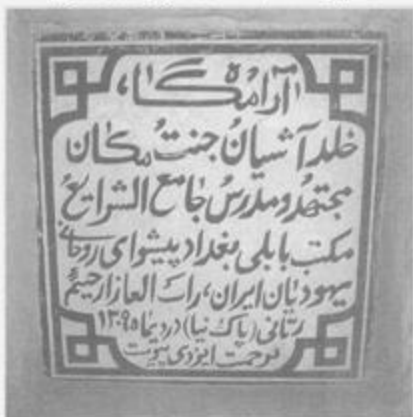 آرامگاه
خلد آشیان جنت مکان
مجتهد و مدرس جامع الشرایع
مکتب بابلی بغداد پیشوای روحانی
یهودیان ایران، راب العازار حیم
ربانی (پاک نیا) در دیماه ۱۳۰۹
برحمت ایزدی پیوست